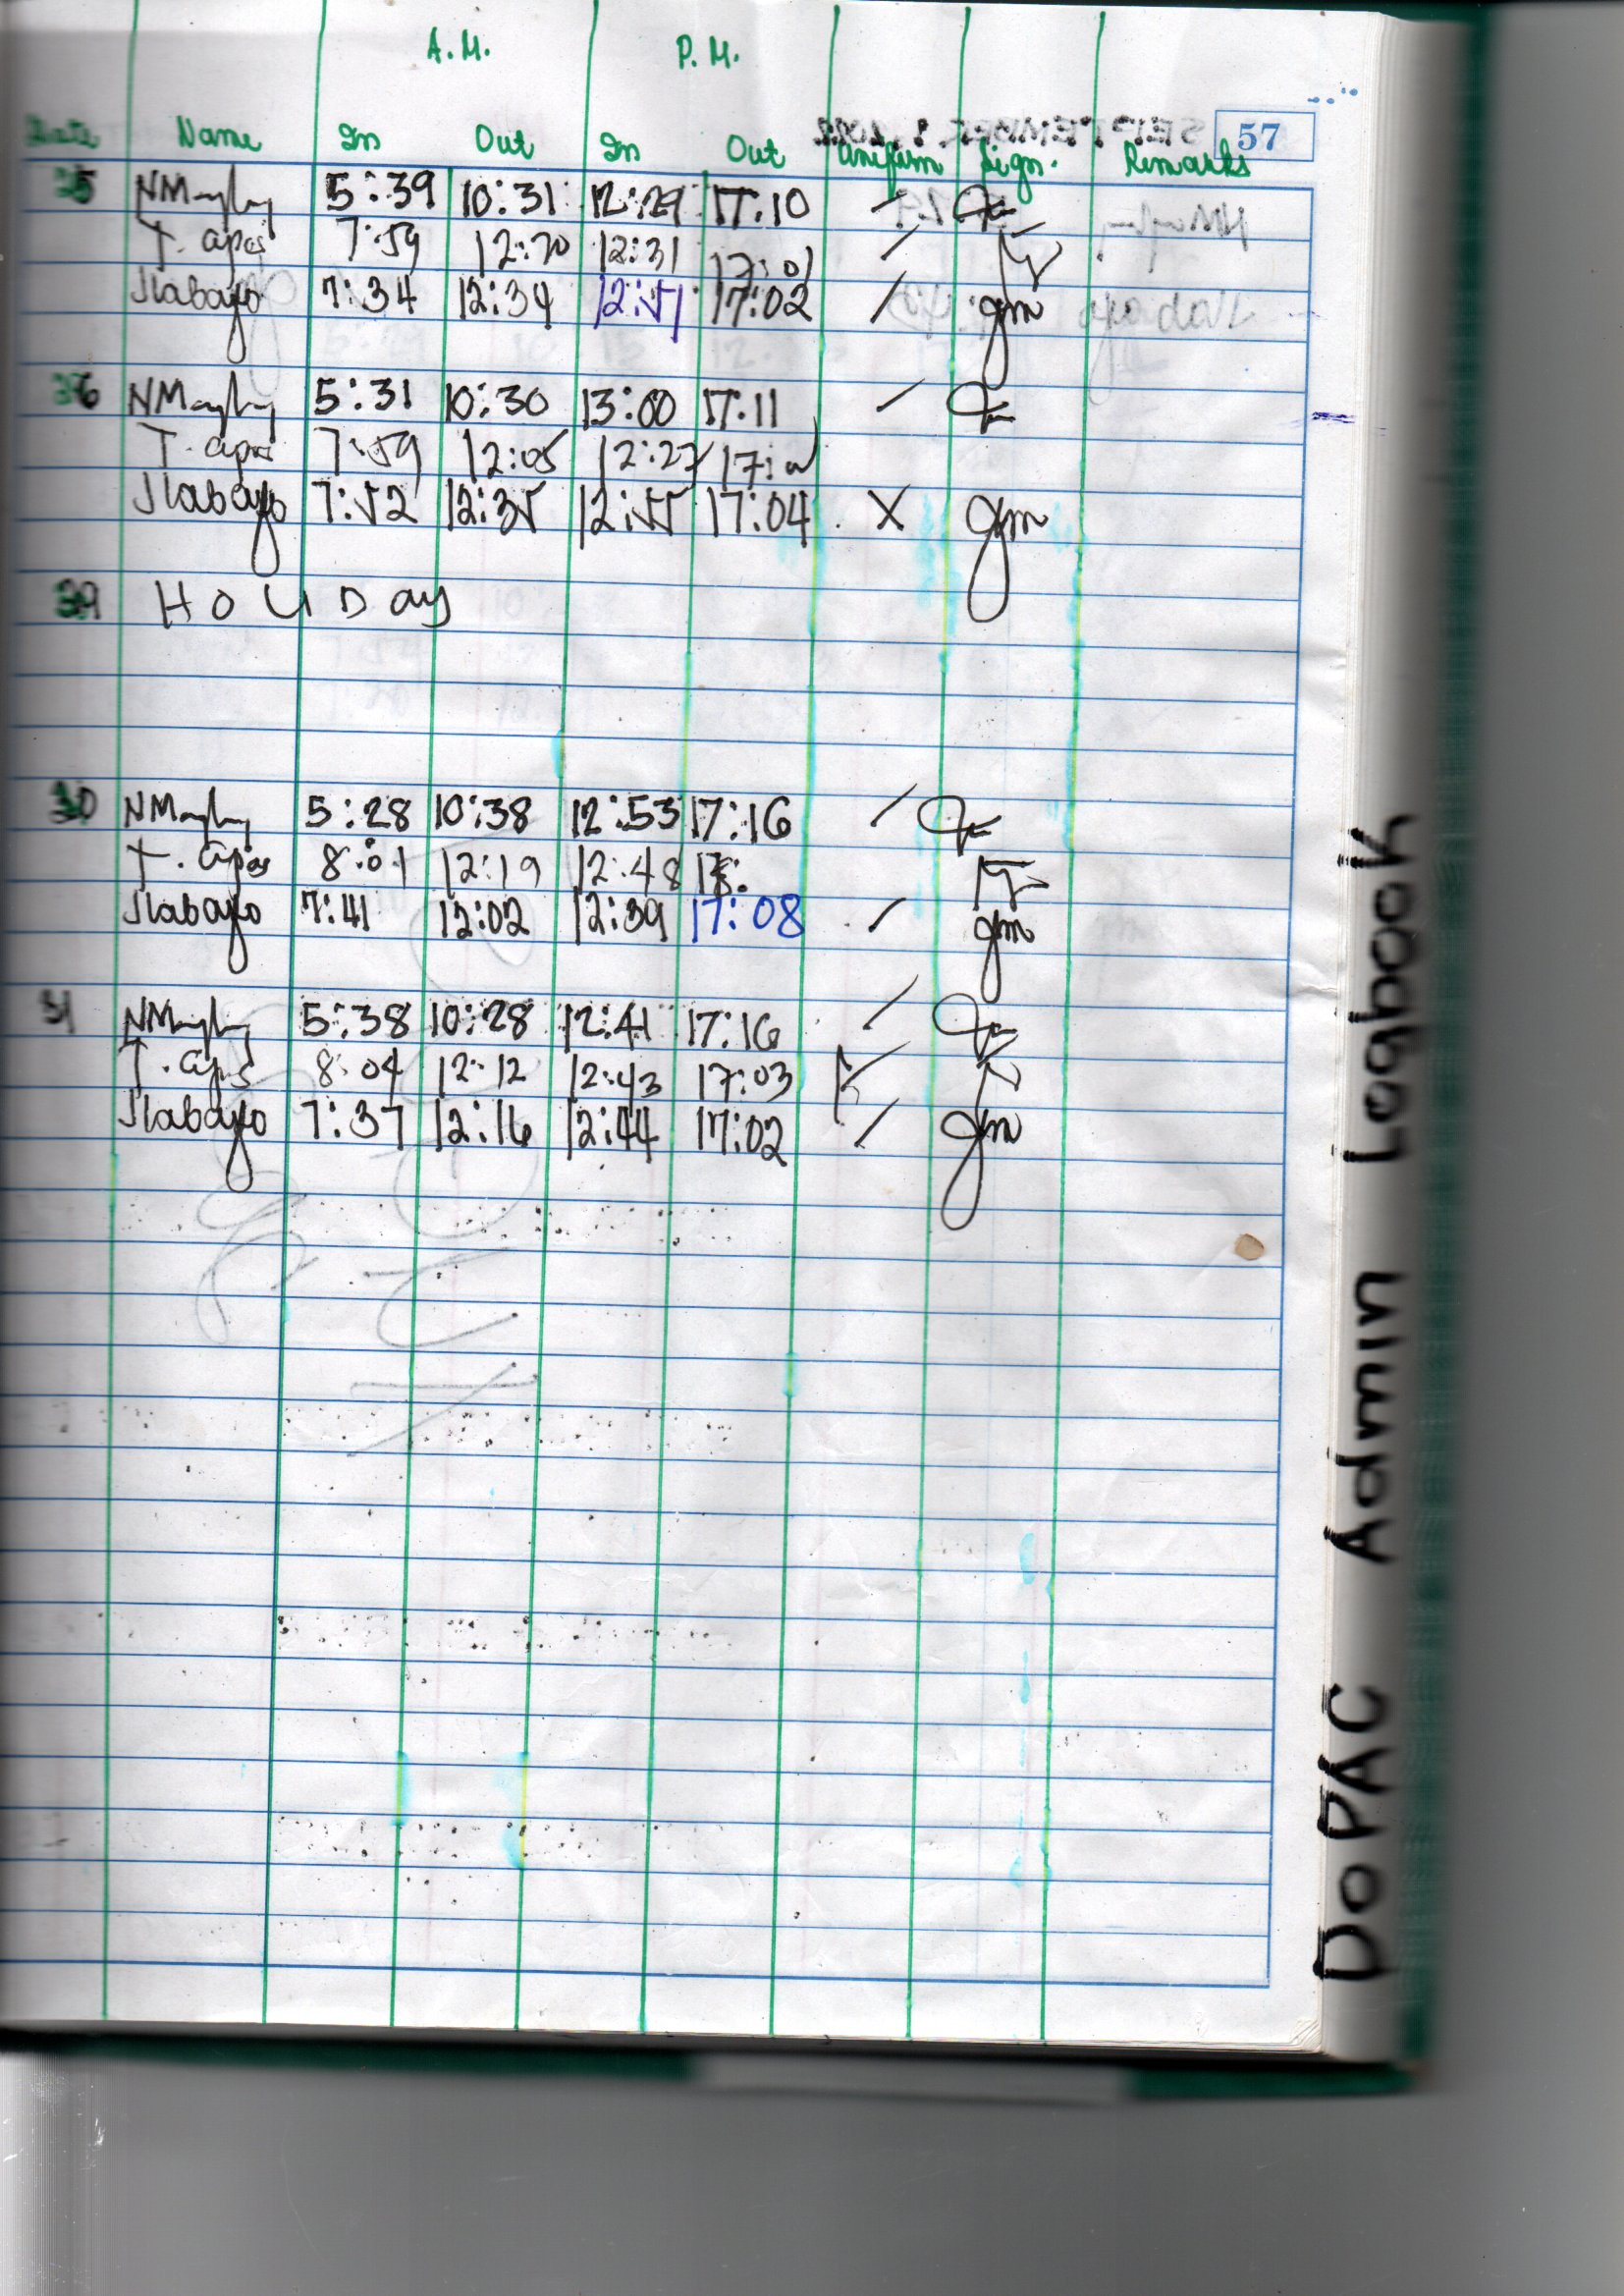 A.M. P.M.
57
Date Name In Out In Out Uniform Sign. Remarks
25 5:39 10:31 12:29 17:10
T. apas 7:59 12:20 12:31 17:01
Jlabayo 7:34 12:34 12:51 17:02
26 5:31 10:30 13:00 17:11
T. apas 7:59 12:05 12:27
Jlabayo 7:52 12:35 12:55 17:04 X
29 HOLIDAY
30 5:28 10:38 12:53 17:16
T. apas 8:01 12:19 12:48
Jlabayo 7:41 12:02 12:39 17:08
31 5:38 10:28 12:41 17:16
T. apas 8:04 12:12 12:43 17:03
Jlabayo 7:37 12:16 12:44 17:02
DoPAC Admin Logbook